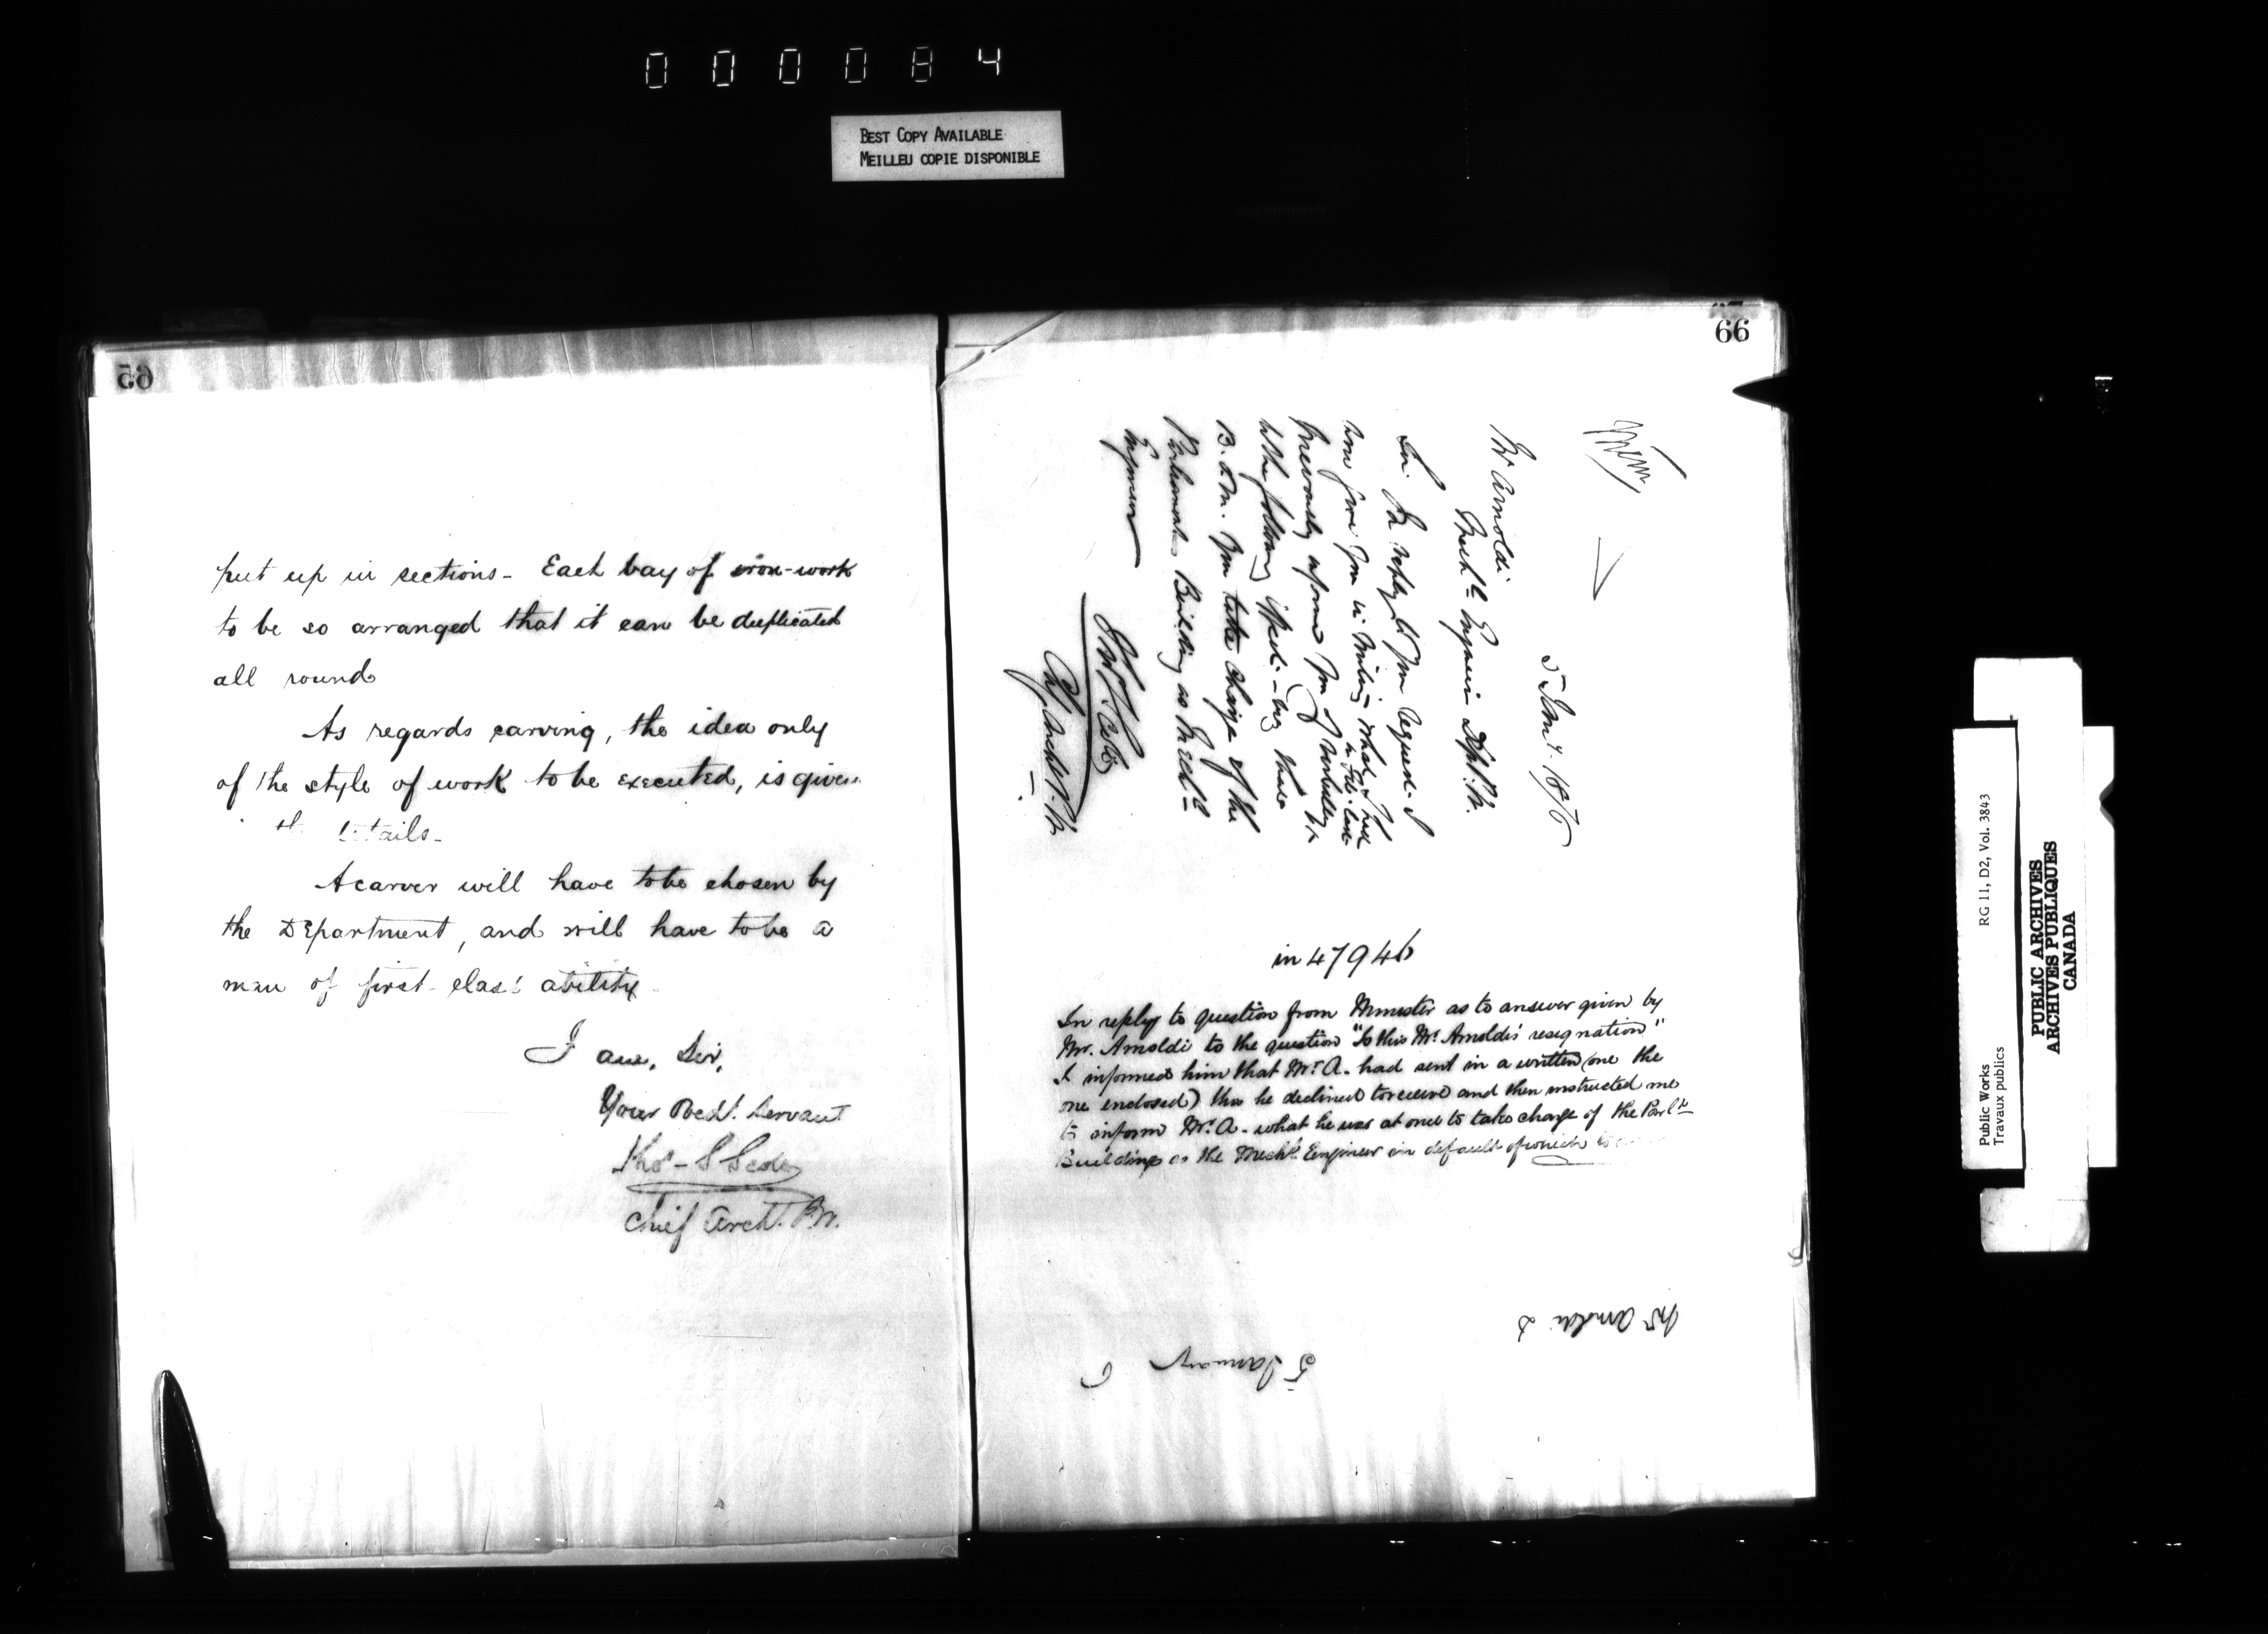 000084
BEST COPY AVAILABLE
MEILLEU COPIE DISPONIBLE
65
put up in sections - Each bay of iron-work
to be so arranged that it can be duplicated
all round
As regards carving, the idea only
of the style of work to be executed, is given
details -
A carver will have to be chosen by
the Department, and will have to be a
man of first-class ability
I am, Sir,
Your Obedt. Servant
Thos - S Scott
Chief Archt. P.W.
66
Mem
5 Jany. 1876
Mr Arnoldi
Mechl. Engineer Dept. P.W.
Sir. In reply to your request - I
now give you in writing what I had
previously informed you of verbally
to the following effect - viz that
you take charge of the
Parliament Building as Mechl
Engineer
Thos S Scott
Chf Archt P.W.
in 47946
In reply to question from Minister as to answer given by
Mr. Arnoldi to the question "Is this Mr. Arnoldi's resignation"
I informed him that Mr. A. had sent in a written (one the
one enclosed) this he declined to receive and then instructed me
to inform Mr. A. what he was at once to take charge of the Parlt
Buildings as the Mechl. Engineer in default of which to
Mr. Arnoldi
5 January 6
Public Works
Travaux publics
RG 11, D2, Vol. 3843
PUBLIC ARCHIVES
ARCHIVES PUBLIQUES
CANADA